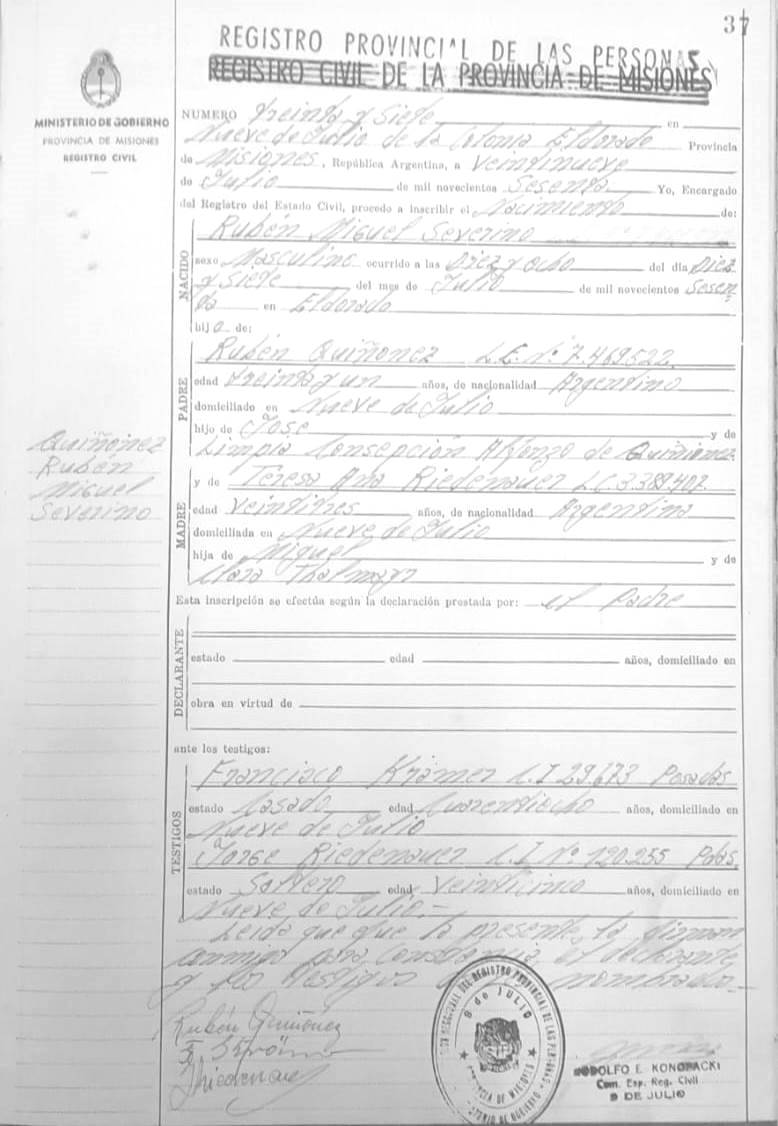 37
REGISTRO PROVINCIAL DE LAS PERSONAS
REGISTRO CIVIL DE LA PROVINCIA DE MISIONES
MINISTERIO DE GOBIERNO
PROVINCIA DE MISIONES
REGISTRO CIVIL
NUMERO treinta y Siete en
Nueve de Julio de la Colonia Eldorado Provincia
de Misiones, República Argentina, a Veintinueve
de Julio de mil novecientos Sesenta Yo, Encargado
del Registro del Estado Civil, procedo a inscribir el Nacimiento de:
NACIDO
Rubén Miguel Severino
sexo Masculino ocurrido a las Diez y ocho del día Diez
y Siete del mes de Julio de mil novecientos Sesen-
ta en Eldorado
hijo de:
PADRE
Rubén Quiñonez L.E. Nº 7.469.522.
edad treinta y un años, de nacionalidad Argentino
domiciliado en Nueve de Julio
hijo de José y de
Limpia Consepción Alfonzo de Quiñonez.
Quiñonez
Rubén
Miguel
Severino
MADRE
y de Teresa Ana Riedenauer L.C. 3.389.402.
edad Veintitres años, de nacionalidad Argentina
domiciliada en Nueve de Julio
hija de Miguel y de
Clara Thalmayr
Esta inscripción se efectúa según la declaración prestada por: el Padre
DECLARANTE
estado edad años, domiciliado en
obra en virtud de
ante los testigos:
TESTIGOS
Francisco Krämer C.I 29.673 Posadas
estado Casado edad Cuarentiocho años, domiciliado en
Nueve de Julio
Jorge Riedenauer C.I Nº 120.255 Pdas.
estado Soltero edad Veinticinco años, domiciliado en
Nueve de Julio.-
Leida que fue la presente, la firman
conmigo para constancia el declarante
y los testigos nombrados.-
Rubén Quiñónez
REGISTRO PROVINCIAL DE LAS PERSONAS
9 de JULIO
PROVINCIA DE MISIONES
MINISTERIO DE GOBIERNO
RODOLFO E. KONOPACKI
Com. Esp. Reg. Civil
9 DE JULIO